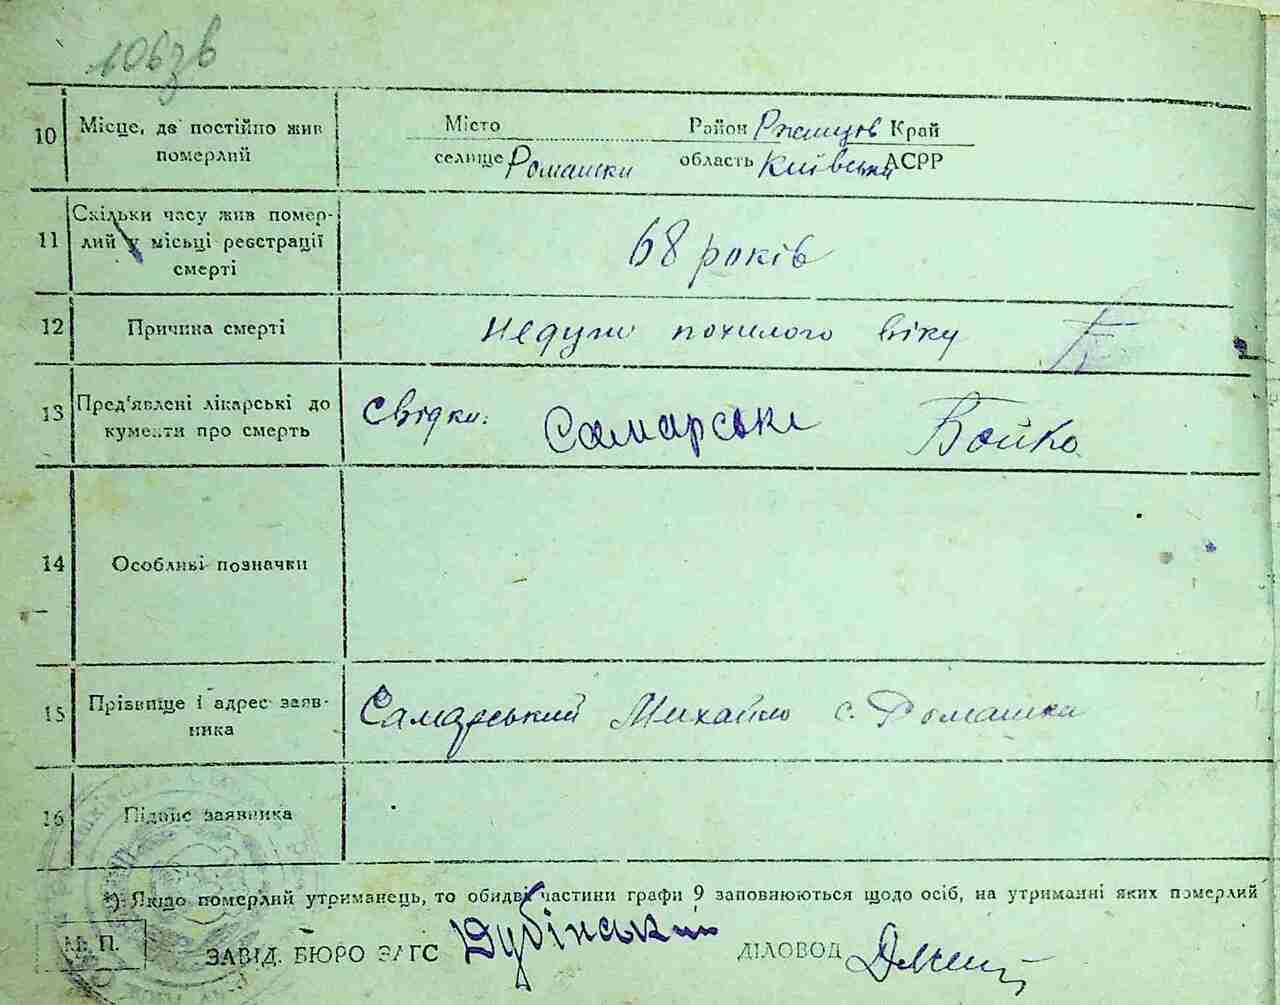 106зв
10 Місце, де постійно жив Місто Район Ржищов Край
померлий селище Ромашки область Київськ АСРР
11 Скільки часу жив помер-
лий у місьці реєстрації 68 років
смерті
12 Причина смерті Недуги похилого віку
13 Пред'явлені лікарські до Свідки: Самарськ Бойко
кументи про смерть
14 Особливі позначки
15 Прізвище і адрес заяв- Самарський Михайло с. Ромашки
ника
16 Підпис заявника
*) Якщо померлий утриманець, то обидві частини графи 9 заповнюються щодо осіб, на утриманні яких померлий
М. П.
ЗАВІД. БЮРО ЗАГС Дубінський ДІЛОВОД